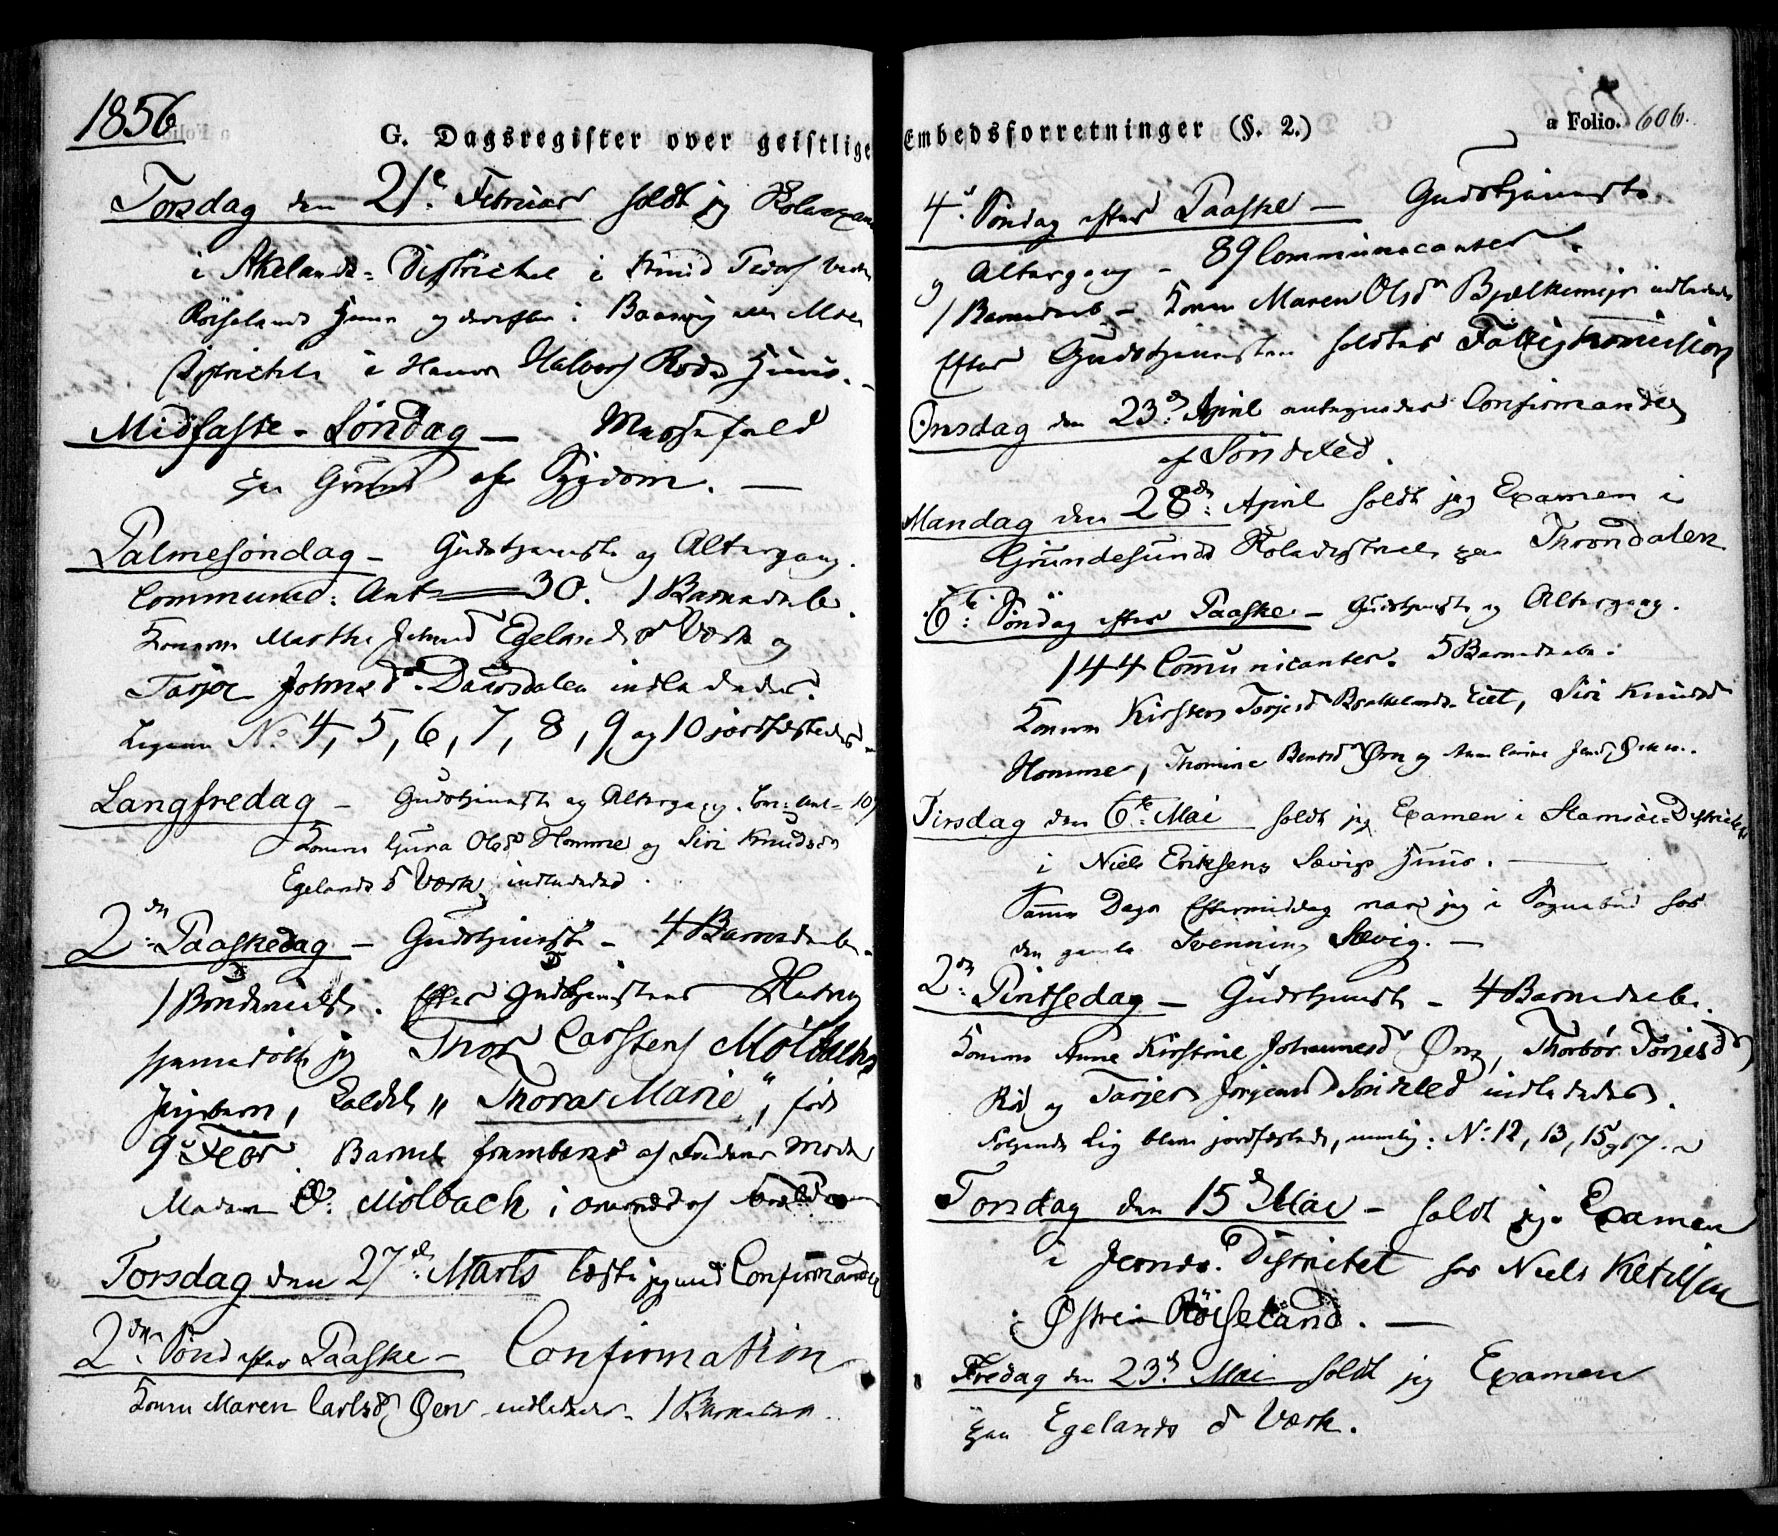 1856
G. Dagsregister over geistlige
Torsdag den 21de Februar holdt jeg Skoleexam
i Akelands-Districtet i Knud
Røiselands Huus og derefter i Baasvig
Districtet i Halvors Røds Huus. -
Midfaste-Søndag - Messefald
paa Grund af Sygdom. -
Palmesøndag - Gudstjeneste og Altergang.
Communic: Ant 30. 1 Barnedaab.
Konerne Marthe Egelands Værk og
Tarjer Johnsd. Daasdalen indledede.
Ligene No 4, 5, 6, 7, 8, 9 og 10 jordfæstedes
Langfredag - Gudstjeneste og Altergang. Com: Ant- 107
Konerne Gura Olsd Homme og Siri Knudsd
Egelands Værk indledede.
2den Paaskedag - Gudstjeneste - 4 Barnedaab.
1 Brudevielse. Efter Gudstjenesten
hjemmedøbte jeg Thor Carstens Mölbachs
Pigebarn, kaldet „Thora Marie“, født
9de Febr. Barnet frembaaret af Moder
Madam Mölbach i
Torsdag den 27de Marts læste jeg med Confirmander
2den Sönd. efter Paaske - Confirmation
Konen Maren Carlsd. Øen indlededes. 1 Barnedaab.
Embedsforretninger (§. 2.)
a Folio. 606.
4de Søndag efter Paaske - Gudstjeneste
og Altergang - 89 Communicanter.
1 Barnedaab - Konen Maren Olsdr indledede
Efter Gudstjenesten holdtes Fattigkomission
Onsdag den 23de April antegnedes Confirmander
af Söndeled.
Mandag den 28de April holdt jeg Examen i
Grundesunds Skoledistrict paa Throndalen
6te Søndag efter Paaske - Gudstjeneste og Altergang.
144 Communicanter. 5 Barnedaab.
Konerne Kirsten Torjesd Eiet, Siri Knudsd
Homme, Thomine Bentsd Øen og
Tirsdag den 6te Mai holdt jeg Examen i Stamsøe-Districtet
i Niels Eriksens Sævigs Huus. -
Samme Dags Eftermiddag var jeg i Sognebud hos
den gamle Svenning Sævig. -
2den Pintsedag - Gudstjeneste - 4 Barnedaab.
Konerne Anne Kirstine Johannesd Øen, Thorbör Torjesdr
Röd og Tarjer Jörgensd Söndeled indledede.
Følgende Lig bleve jordfæstede, nemlig: No 12, 13, 15 og 17.
Torsdag den 15de Mai - holdt jeg Examen
i Jernæs-Districtet hos Niels Ketilsen
i Østre Röiseland. -
Fredag den 23de Mai holdt jeg Examen
paa Egelands Værk.